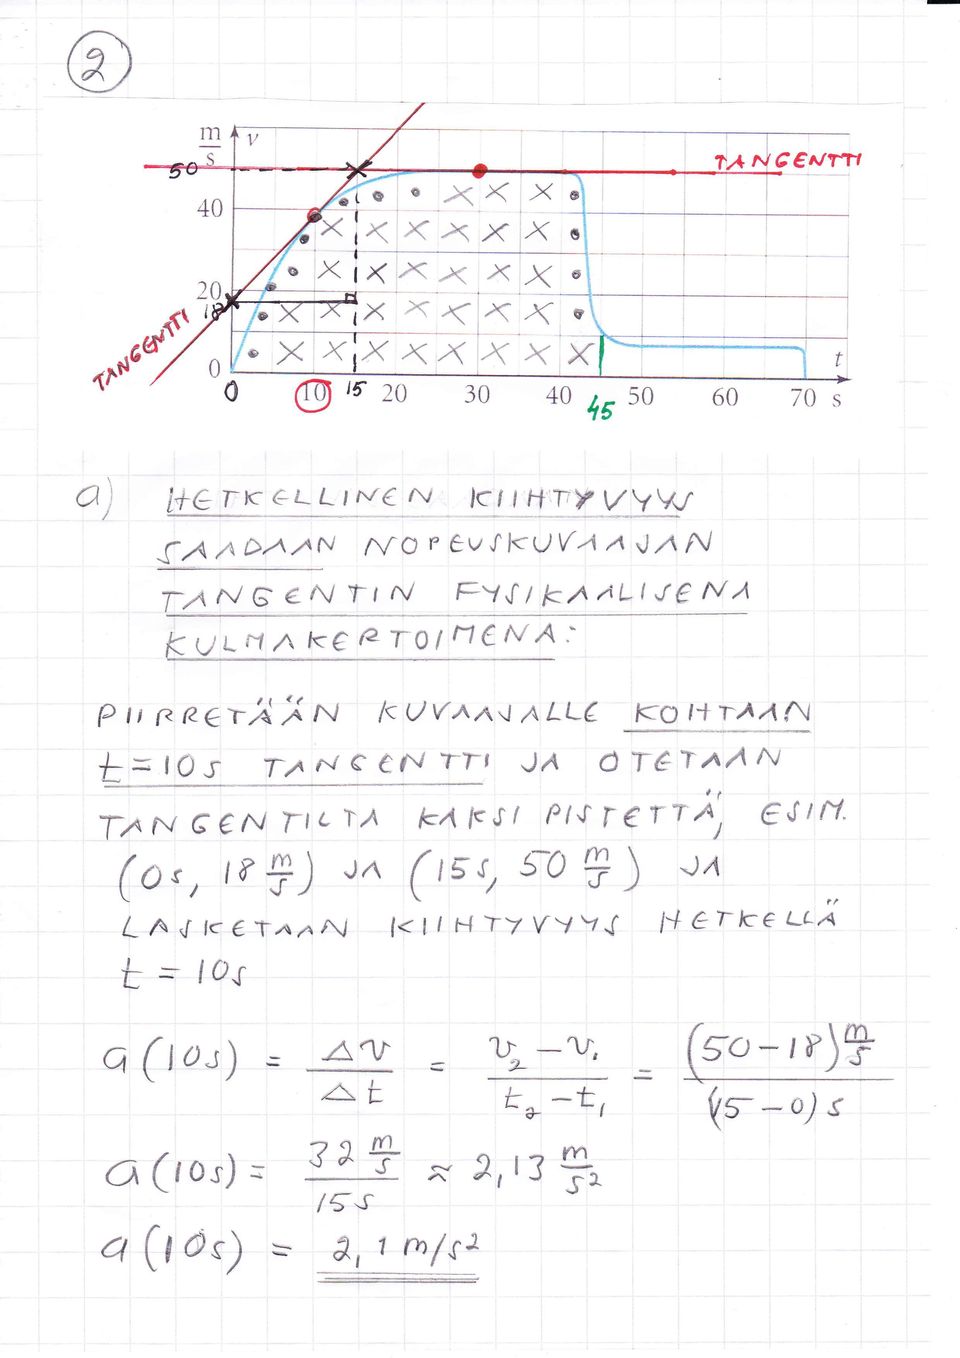 2
m/s v
50 TANGENTTI
40
20
18
TANGENTTI
0 t
0 10 15 20 30 40 45 50 60 70 s
a) HETKELLINEN KIIHTYVYYS
SAADAAN NOPEUSKUVAAJAN
TANGENTIN FYSIKAALISENA
KULMAKERTOIMENA:
PIIRRETÄÄN KUVAAJALLE KOHTAAN
t = 10s TANGENTTI JA OTETAAN
TANGENTILTA KAKSI PISTETTÄ, ESIM.
(0s, 18 m/s) JA (15s, 50 m/s) JA
LASKETAAN KIIHTYVYYS HETKELLÄ
t = 10s
a(10s) = Δv/Δt = (v₂ - v₁)/(t₂ - t₁) = (50-18) m/s / (15-0) s
a(10s) = 32 m/s / 15 s ≈ 2,13 m/s²
a(10s) = 2,1 m/s²